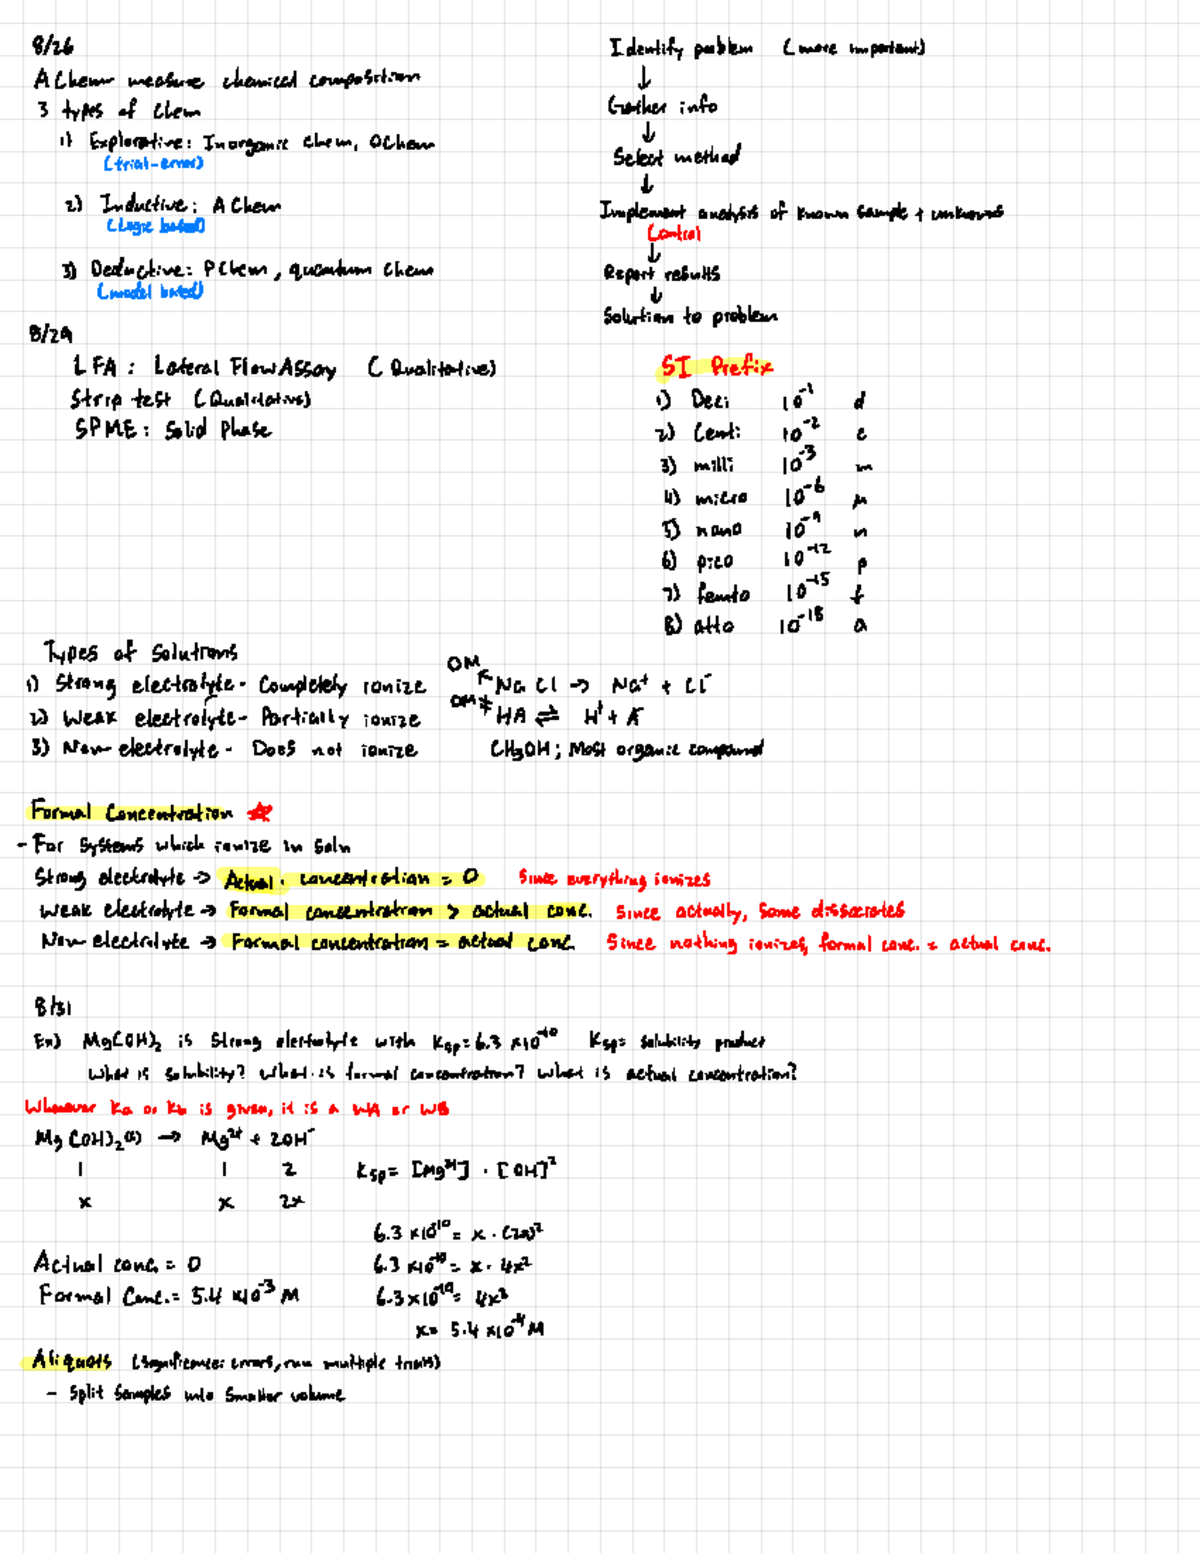 8/26
AChem measure chemical composition
3 types of Chem
1) Explorative: Inorganic chem, OChem
(trial-error)
2) Inductive: A Chem
(Logic based)
3) Deductive: PChem, quantum Chem
(model based)
Identify problem (more important)
↓
Gather info
↓
Select method
↓
Implement analysis of known sample + unknowns
Control
↓
Report results
↓
Solution to problem
8/29
LFA: Lateral Flow Assay (Qualitative)
Strip test (Qualitative)
SPME: Solid Phase
SI Prefix
1) Deci 10⁻¹ d
2) Centi 10⁻² c
3) milli 10⁻³ m
4) micro 10⁻⁶ μ
5) nano 10⁻⁹ n
6) pico 10⁻¹² p
7) femto 10⁻¹⁵ f
8) atto 10⁻¹⁸ a
Types of Solutions
1) Strong electrolyte - Completely ionize OM NaCl → Na⁺ + Cl⁻
2) Weak electrolyte - Partially ionize HA ⇌ H⁺ + A⁻
3) Non-electrolyte - Does not ionize CH₃OH; Most organic compound
Formal Concentration
- For systems which ionize in soln
Strong electrolyte → Actual concentration = 0 Since everything ionizes
Weak electrolyte → Formal concentration > actual conc. Since actually, some dissociates
Non-electrolyte → Formal concentration = actual conc. Since nothing ionizes, formal conc. = actual conc.
8/31
Ex) Mg(OH)₂ is Strong electrolyte with Ksp = 6.3 x10⁻¹⁰ Ksp = solubility product
What is solubility? What is formal concentration? What is actual concentration?
Whenever Ka or Kb is given, it is a WA or WB
Mg(OH)₂(s) → Mg²⁺ + 2OH⁻
1 1 2 Ksp = [Mg²⁺] · [OH]²
x x 2x
6.3 x10⁻¹⁰ = x · (2x)²
Actual conc. = 0 6.3 x10⁻¹⁰ = x · 4x²
Formal Conc. = 5.4 x10⁻³ M 6.3 x 10⁻¹⁰ = 4x³
x = 5.4 x10⁻⁴ M
Aliquots (significance: errors, run multiple trials)
- Split samples into smaller volume